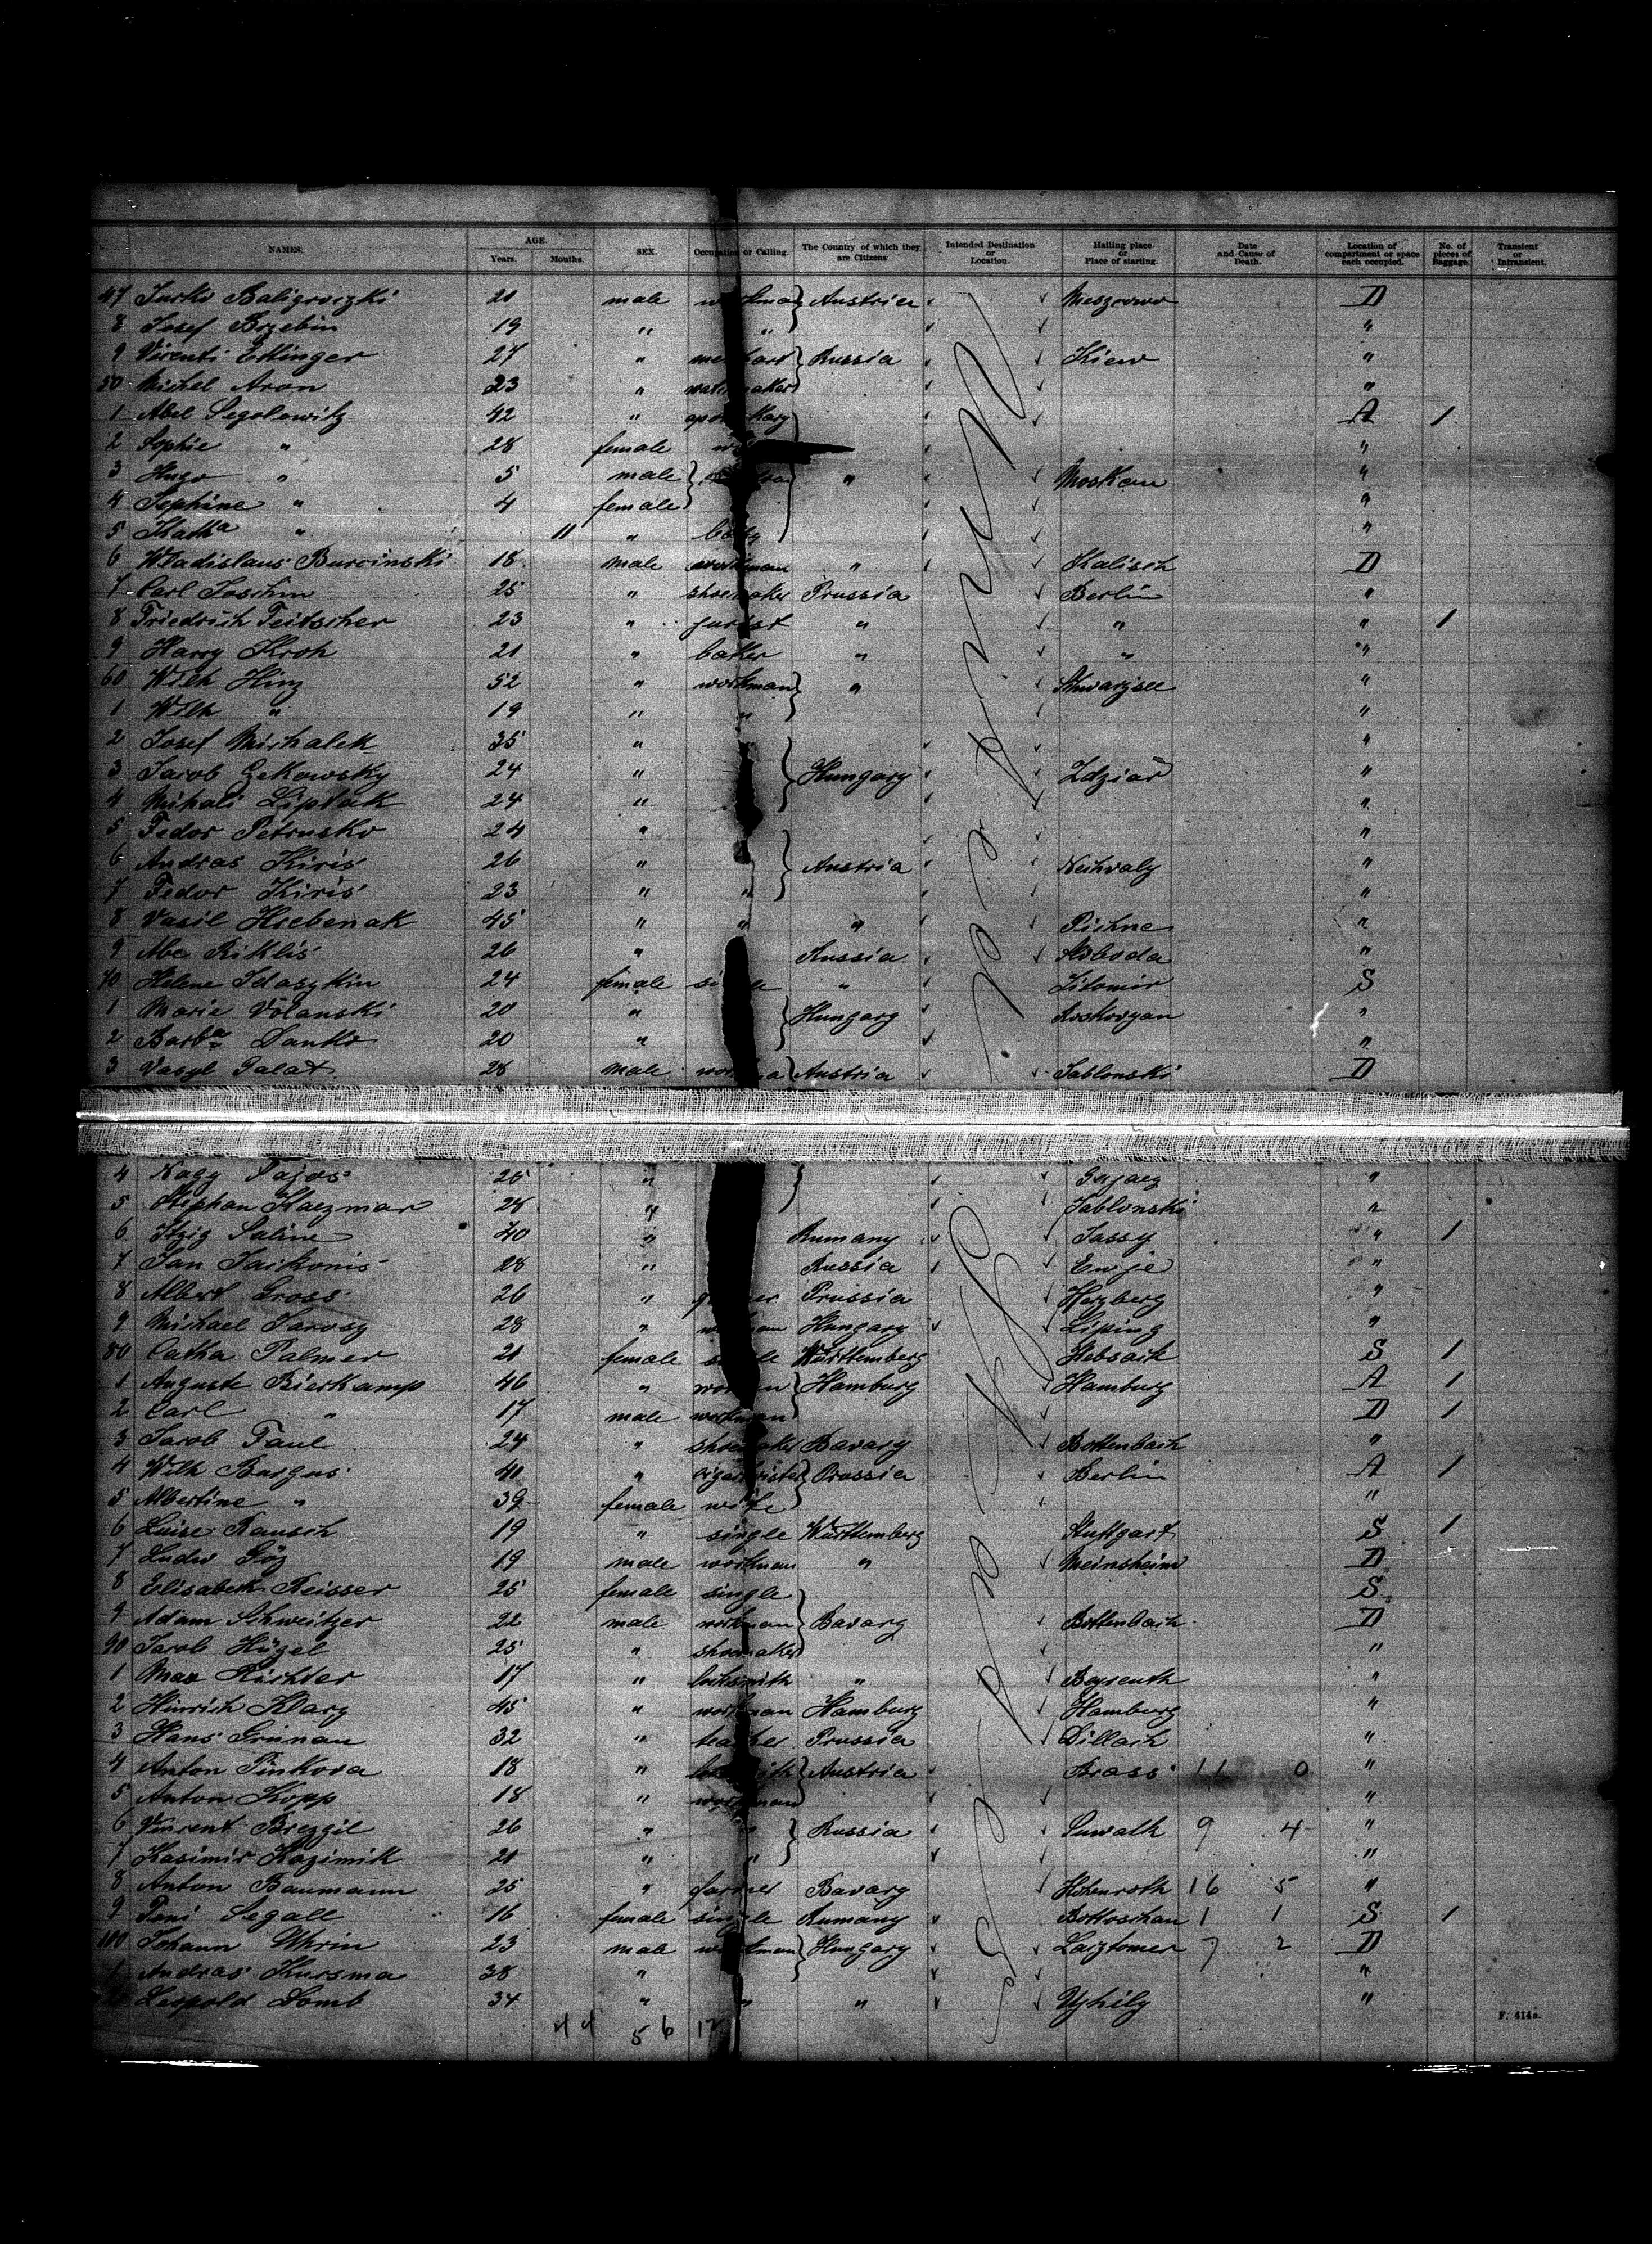 NAMES. AGE. Years. Months. SEX. Occupation or Calling. The Country of which they are Citizens Intended Destination or Location. Hailing place or Place of starting. Date and Cause of Death. Location of compartment or space each occupied. No. of pieces of Baggage. Transient or Intransient.
47 Baligroczki 21 male Austria D
8 Josef Brzebin 19 " " "
9 Ettinger 27 " Russia Kiew "
50 Michel Aron 23 " "
1 Abel Segalowitz 42 " A 1
2 Sophie " 28 female "
3 Hugo " 5 male " Moskau "
4 Josephine " 4 female "
5 Katha " 11 " baby "
6 Wladislaus Burcinski 18 male workman " Kalisch D
7 Carl Joschim 25 " shoemaker Prussia Berlin "
8 Friedrich Teitscher 23 " jurist " " " 1
9 Harry Kroh 21 " baker " " "
60 Wilh Hinz 52 " workman " "
1 Wilh " 19 " " "
2 Josef Michalek 35 " "
3 Jacob 24 " Hungary Zdziar "
4 Mihali Liptak 24 " "
5 Fedor Petrusko 24 " "
6 Andras Kiris 26 " Austria Nechvaly "
7 Fedor Kiris 23 " " "
8 Vasil Hrebenak 45 " " " Pichne "
9 Abe Riklis 26 " Russia Sloboda "
70 Helene 24 female " S
1 Marie Volanski 20 " Hungary "
2 Barba Danko 20 " "
3 Vasyl Galat 28 male Austria Jablonski D
4 Nagy 25 " "
5 Stephan Kaczmar 28 " Jablonski "
6 Itzig Saline 40 " Rumany Jassy " 1
7 Jan 28 " Russia Ewje "
8 Albert Gross 26 " Prussia Herzberg "
9 Michael 28 " Hungary "
80 Catha Palmer 21 female Württemberg Hebsack S 1
1 Auguste Bierkamp 46 " Hamburg Hamburg A 1
2 Carl " 17 male workman D 1
3 Jacob Faul 24 " shoemaker Bavary Bottenbach "
4 Wilh Bargus 41 " Prussia Berlin A 1
5 Albertine " 39 female wife "
6 Luise Rausch 19 " single Württemberg Stuttgart S 1
7 Ludw Göz 19 male workman " Meinsheim D
8 Elisabeth Reisser 25 female single S
9 Adam Schweitzer 22 male workman Bavary Bottenbach D
90 Jacob Hügel 25 " shoemaker "
1 Max Richter 17 " locksmith " Bayreuth "
2 Hinrich Klarg 45 " workman Hamburg Hamburg "
3 Hans Grünau 32 " teacher Prussia Dillach "
4 Anton Pinkova 18 " locksmith Austria 11 0 "
5 Anton Kopp 18 " workman "
6 Vincent Brezgil 26 " " Russia Suwalk 9 4 "
7 Kasimir Kazimik 21 " " "
8 Anton Baumann 25 " farmer Bavary Hohenroth 16 5 "
9 Segall 16 female single Rumany Bottoschan 1 1 S 1
100 Johann Uhrin 23 male workman Hungary 7 2 D
1 Andras Kursma 38 " "
Leopold Lomb 34 " " " Ujhily "
44 56 12
F. 414a.